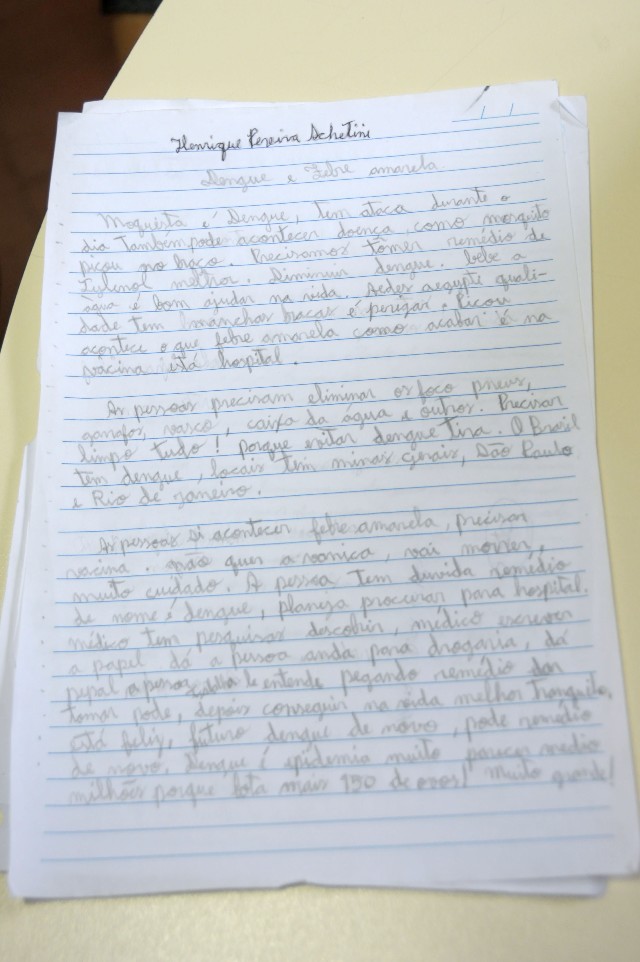 Henrique Pereira Schetini
/ /
Dengue e Febre amarela
Mosquito é Dengue, tem ataca durante o
dia Também pode acontecer doença como mosquito
picou no braço. Precisamos tomer remédio de
Tylenol melhor. Diminuir dengue. bebe a
água é bom ajudar na vida. Aedes aegypte quali-
dade tem manchas bracas é perigar. Picou
acontece o que febre amarela como acabar é na
vacina está hospital.
As pessoas precisam eliminar os foco pneus,
garrafas, vasco, caixa da água e outros. Precisar
limpo tudo! Porque evitar dengue tira. O Brasil
têm dengue, locais tem minas gerais, São Paulo
e Rio de janeiro.
As pessoas si acontecer febre amarela, precisar
vacina. não quer a vanica, vai morrer,
muito cuidado. A pessoa tem duvida remédio
de nome é dengue, planeja procurar para hospital.
médico tem pesquisar descobrir, médico escrever
a papel dá a pessoa anda para drogaria, dá
papel a pessoa, ela lê entende pegando remédio dar
tomar pode, depois conseguir na vida melhor Tranquilo,
está feliz, futuro dengue de novo, pode remédio
de novo. Dengue é epidemia muito parecer medio
milhões porque bota mais 150 de ovos! muito grande!